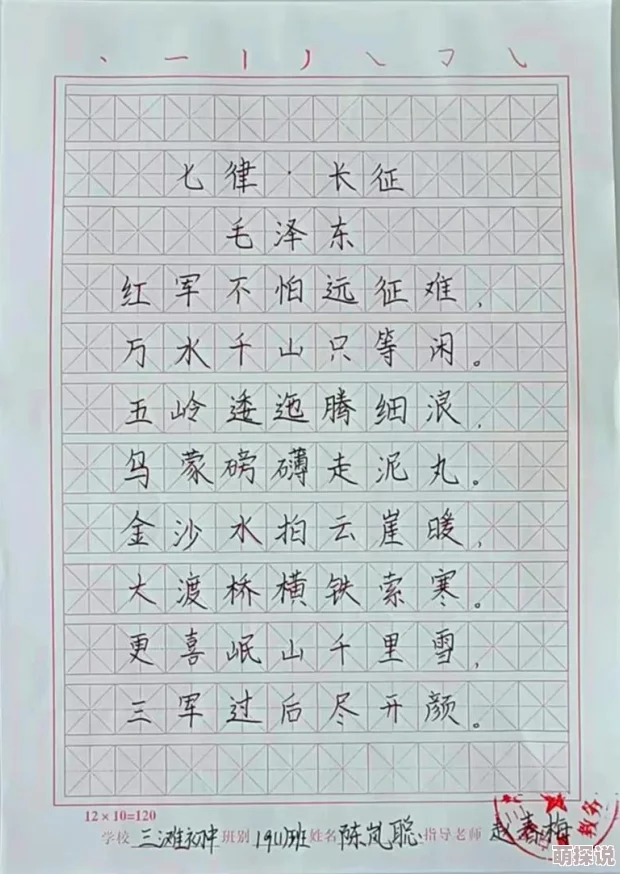 七律·长征
毛泽东
红军不怕远征难,
万水千山只等闲。
五岭逶迤腾细浪,
乌蒙磅礴走泥丸。
金沙水拍云崖暖,
大渡桥横铁索寒。
更喜岷山千里雪,
三军过后尽开颜。
12×10=120
学校 三滩初中 班别 1911班 姓名 陈岚聪 指导老师 赵春梅
教务
萌探说